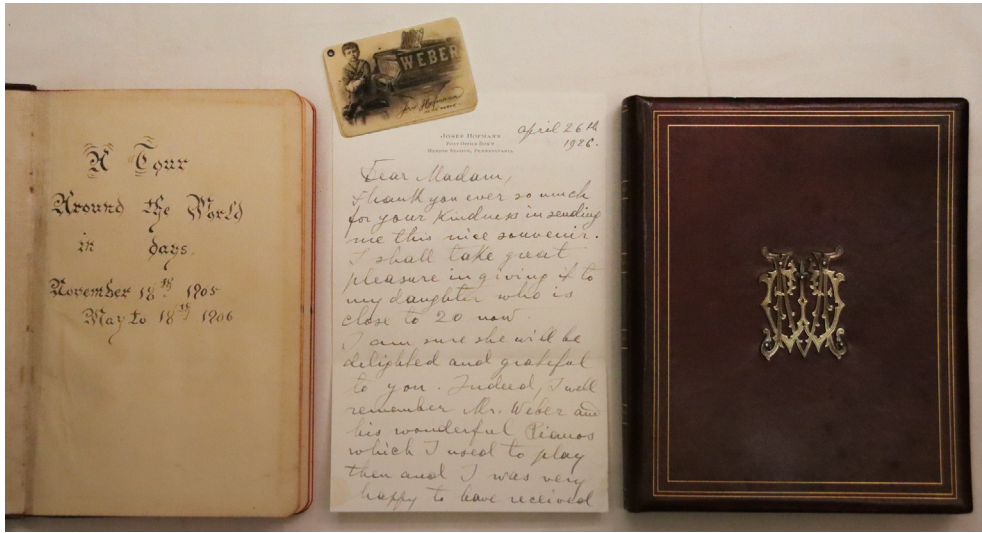 A Tour
Around the World
in days.
November 18th 1905
May to 18th 1906
WEBER
Josef Hofmann
JOSEF HOFMANN
POST OFFICE BOX
MERION STATION, PENNSYLVANIA
april 26th
1926.
Dear Madam,
I thank you ever so much
for your kindness in sending
me this nice souvenir.
I shall take great
pleasure in giving it to
my daughter who is
close to 20 now.
I am sure she will be
delighted and grateful
to you. Indeed, I well
remember Mr. Weber and
his wonderful Pianos
which I used to play
then and I was very
happy to have received